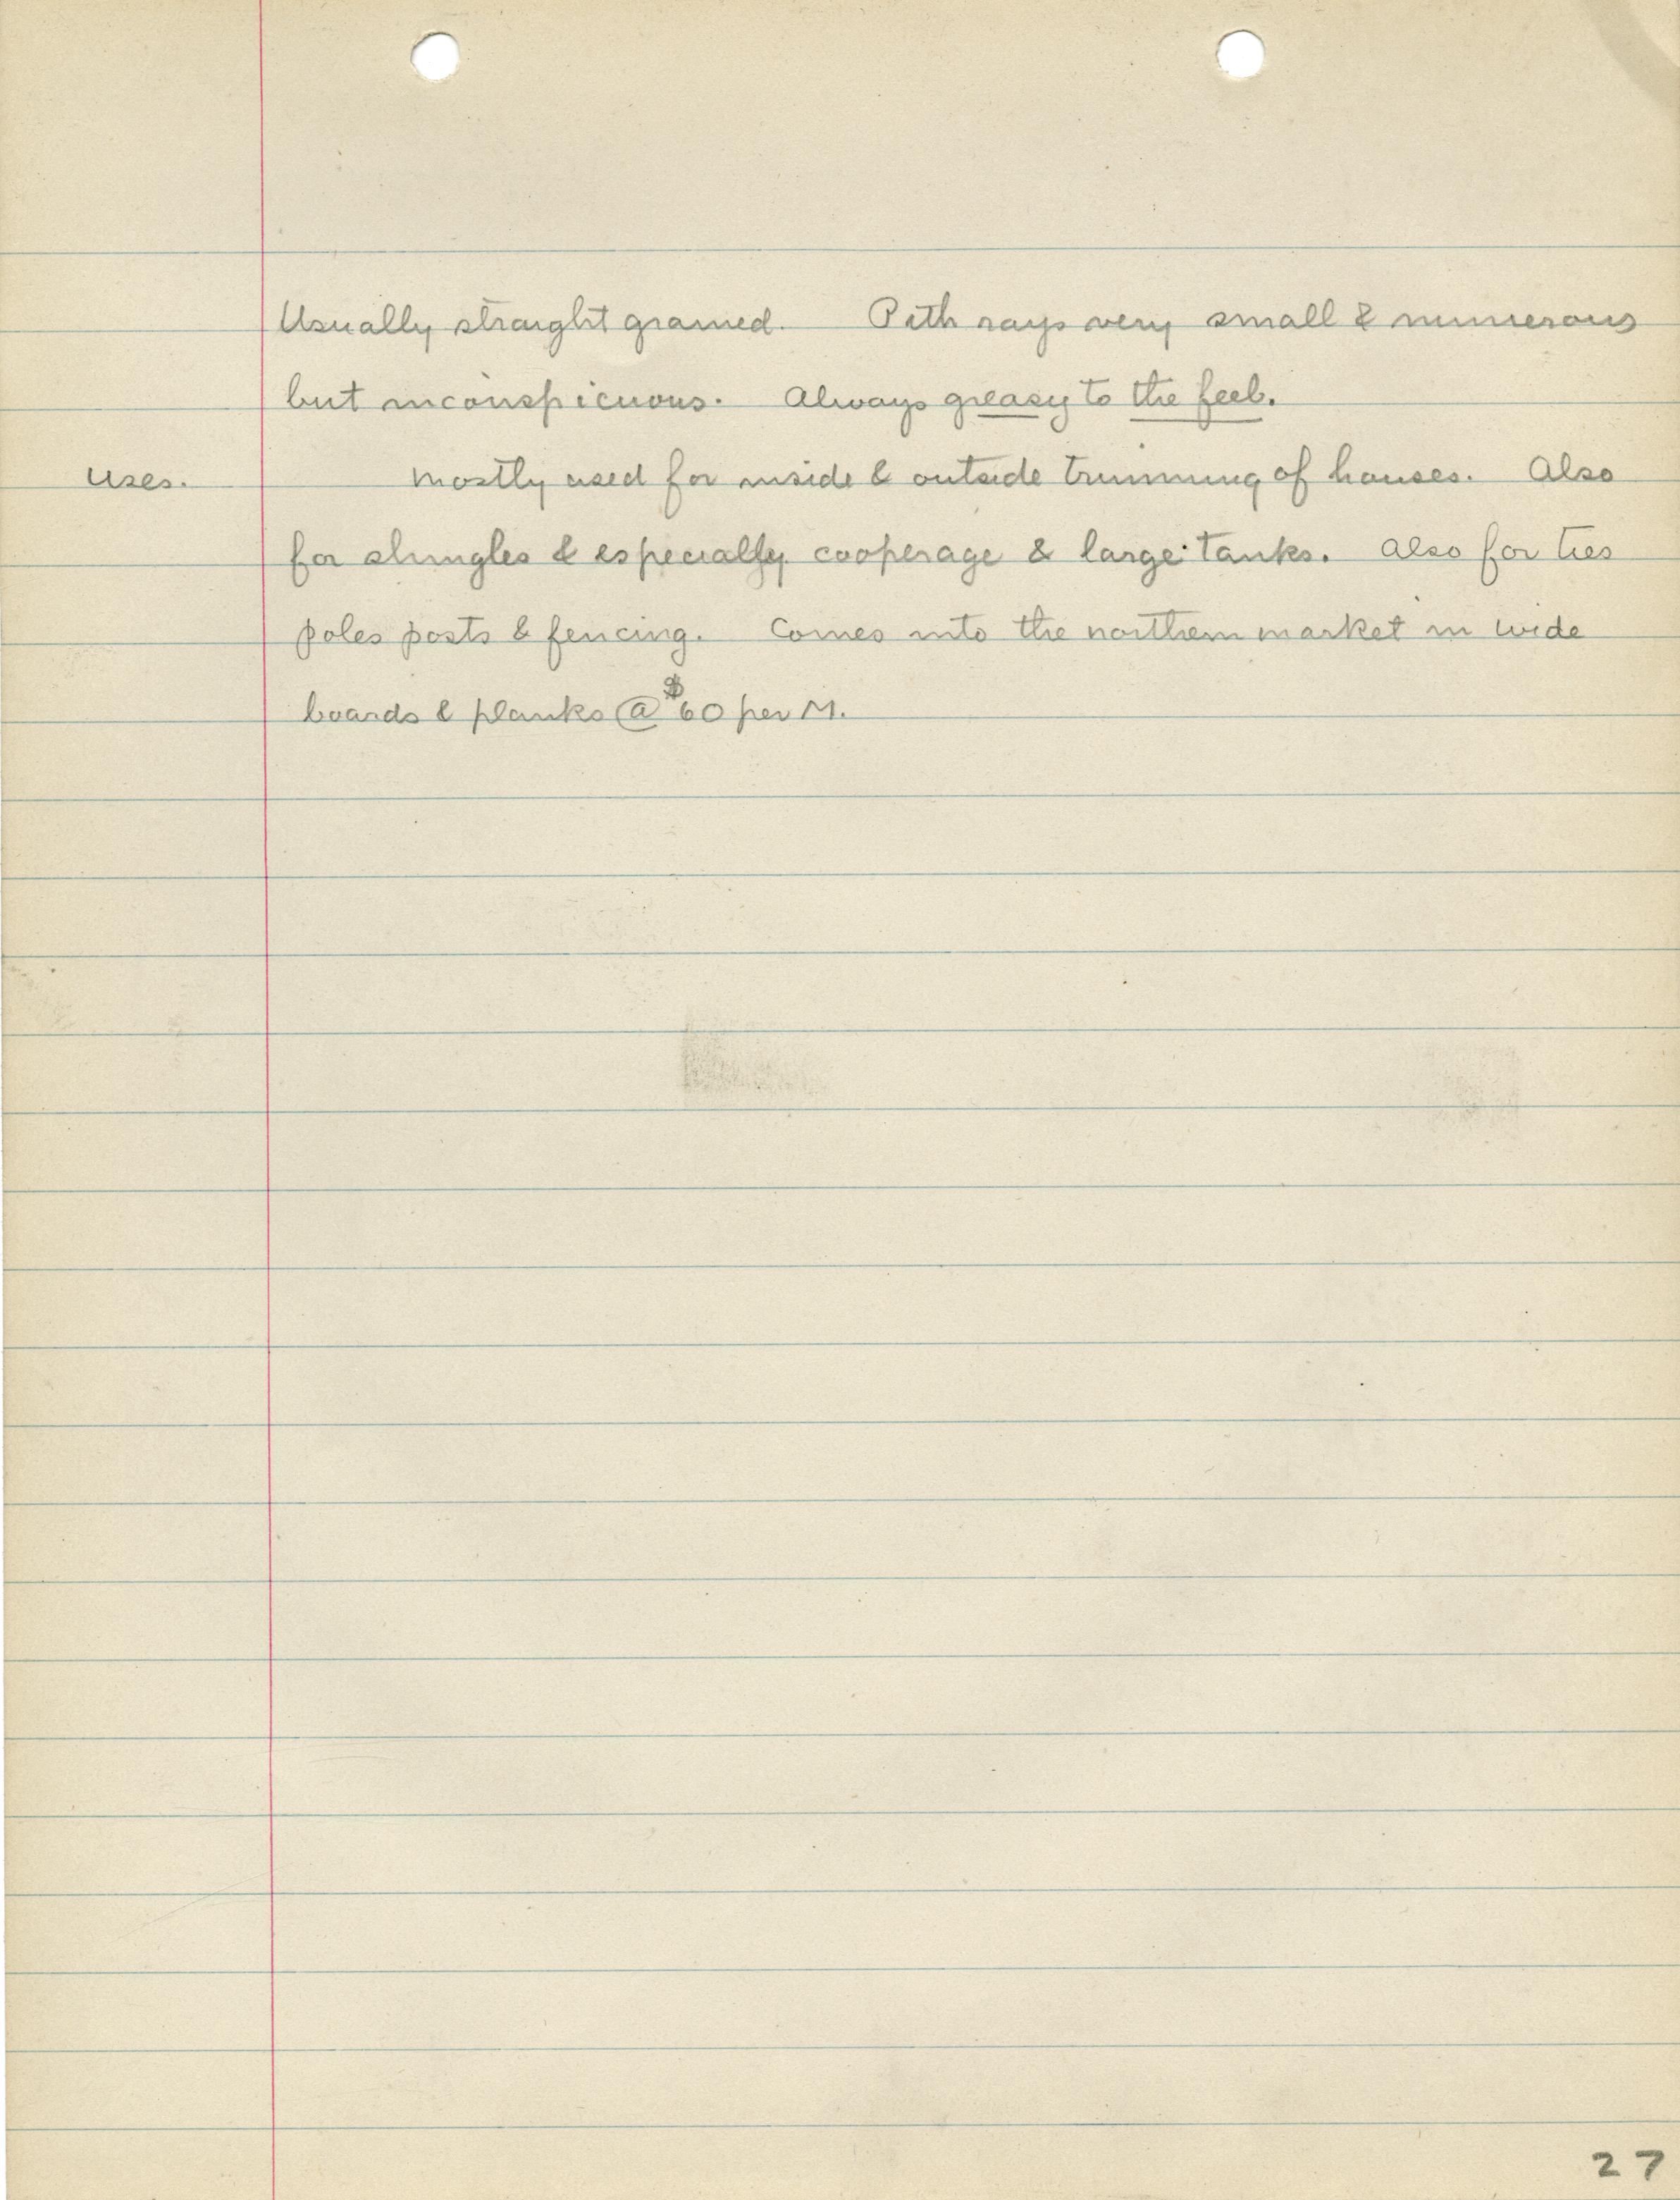 Usually straight grained. Pith rays very small & numerous
but inconspicuous. Always greasy to the feel.
Uses. Mostly used for inside & outside trimming of houses. Also
for shingles & especially cooperage & large tanks. Also for ties
poles posts & fencing. Comes into the northern market in wide
boards & planks @ $60 per M.
27